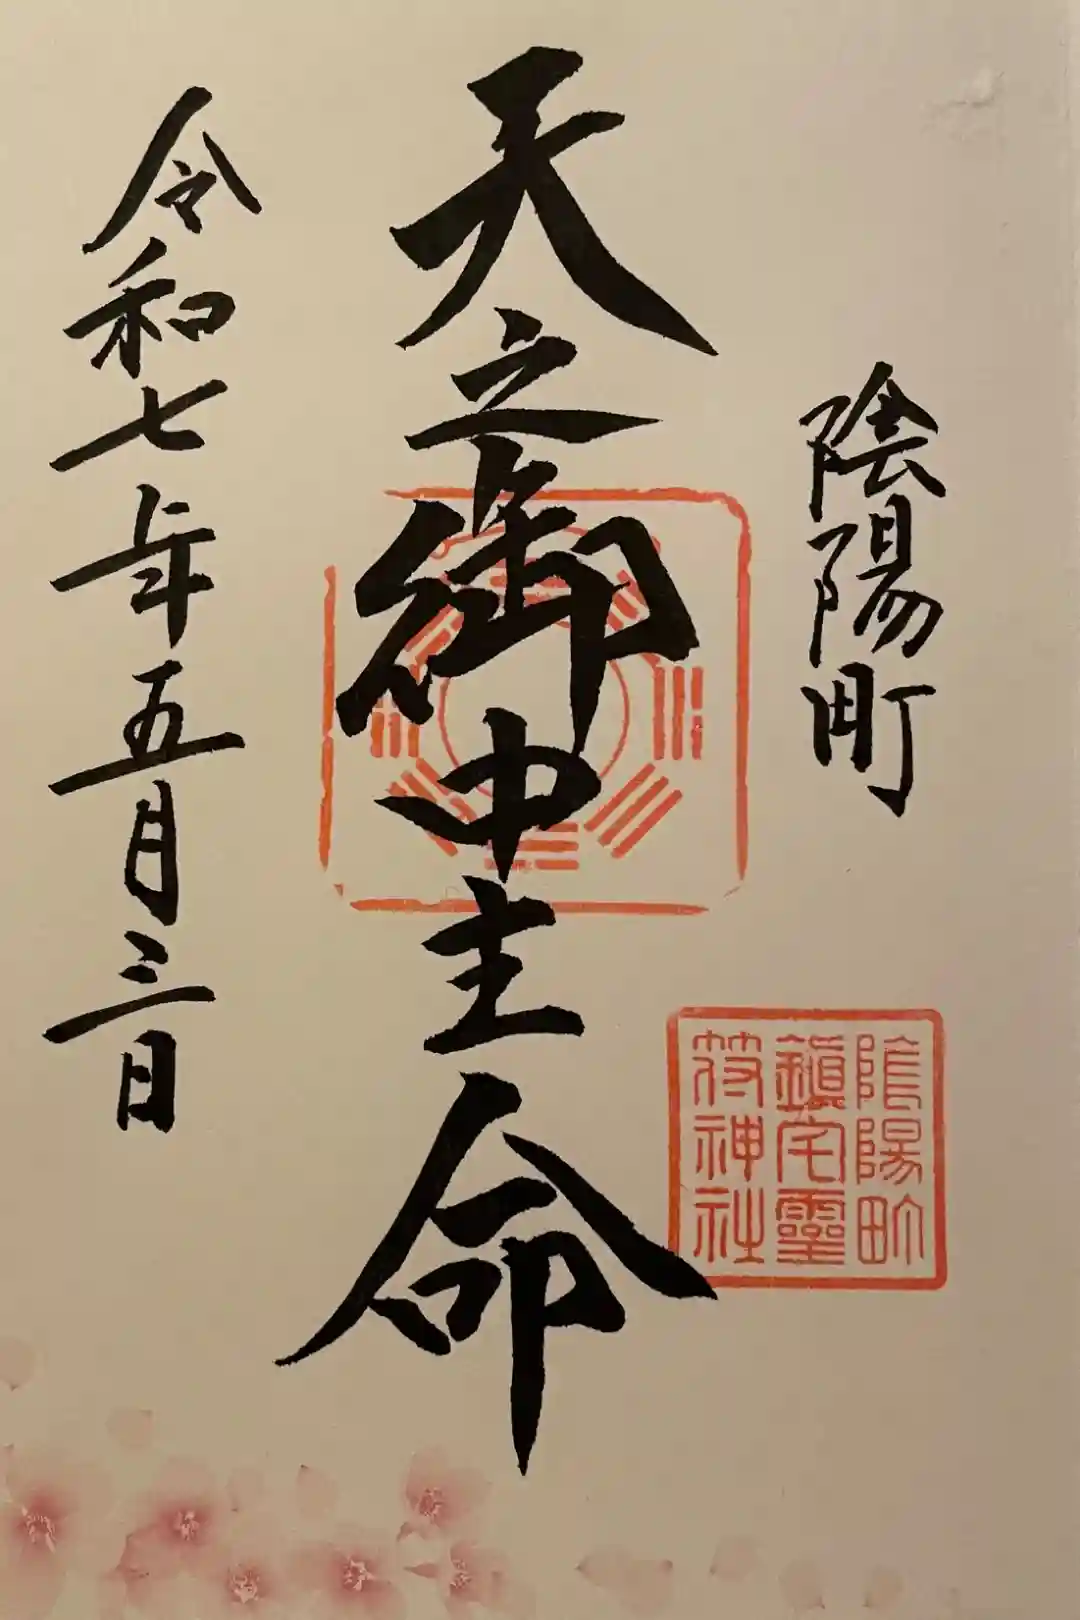 陰陽町
天之御中主命
令和七年五月三日
陰陽町
鎮宅靈
符神社